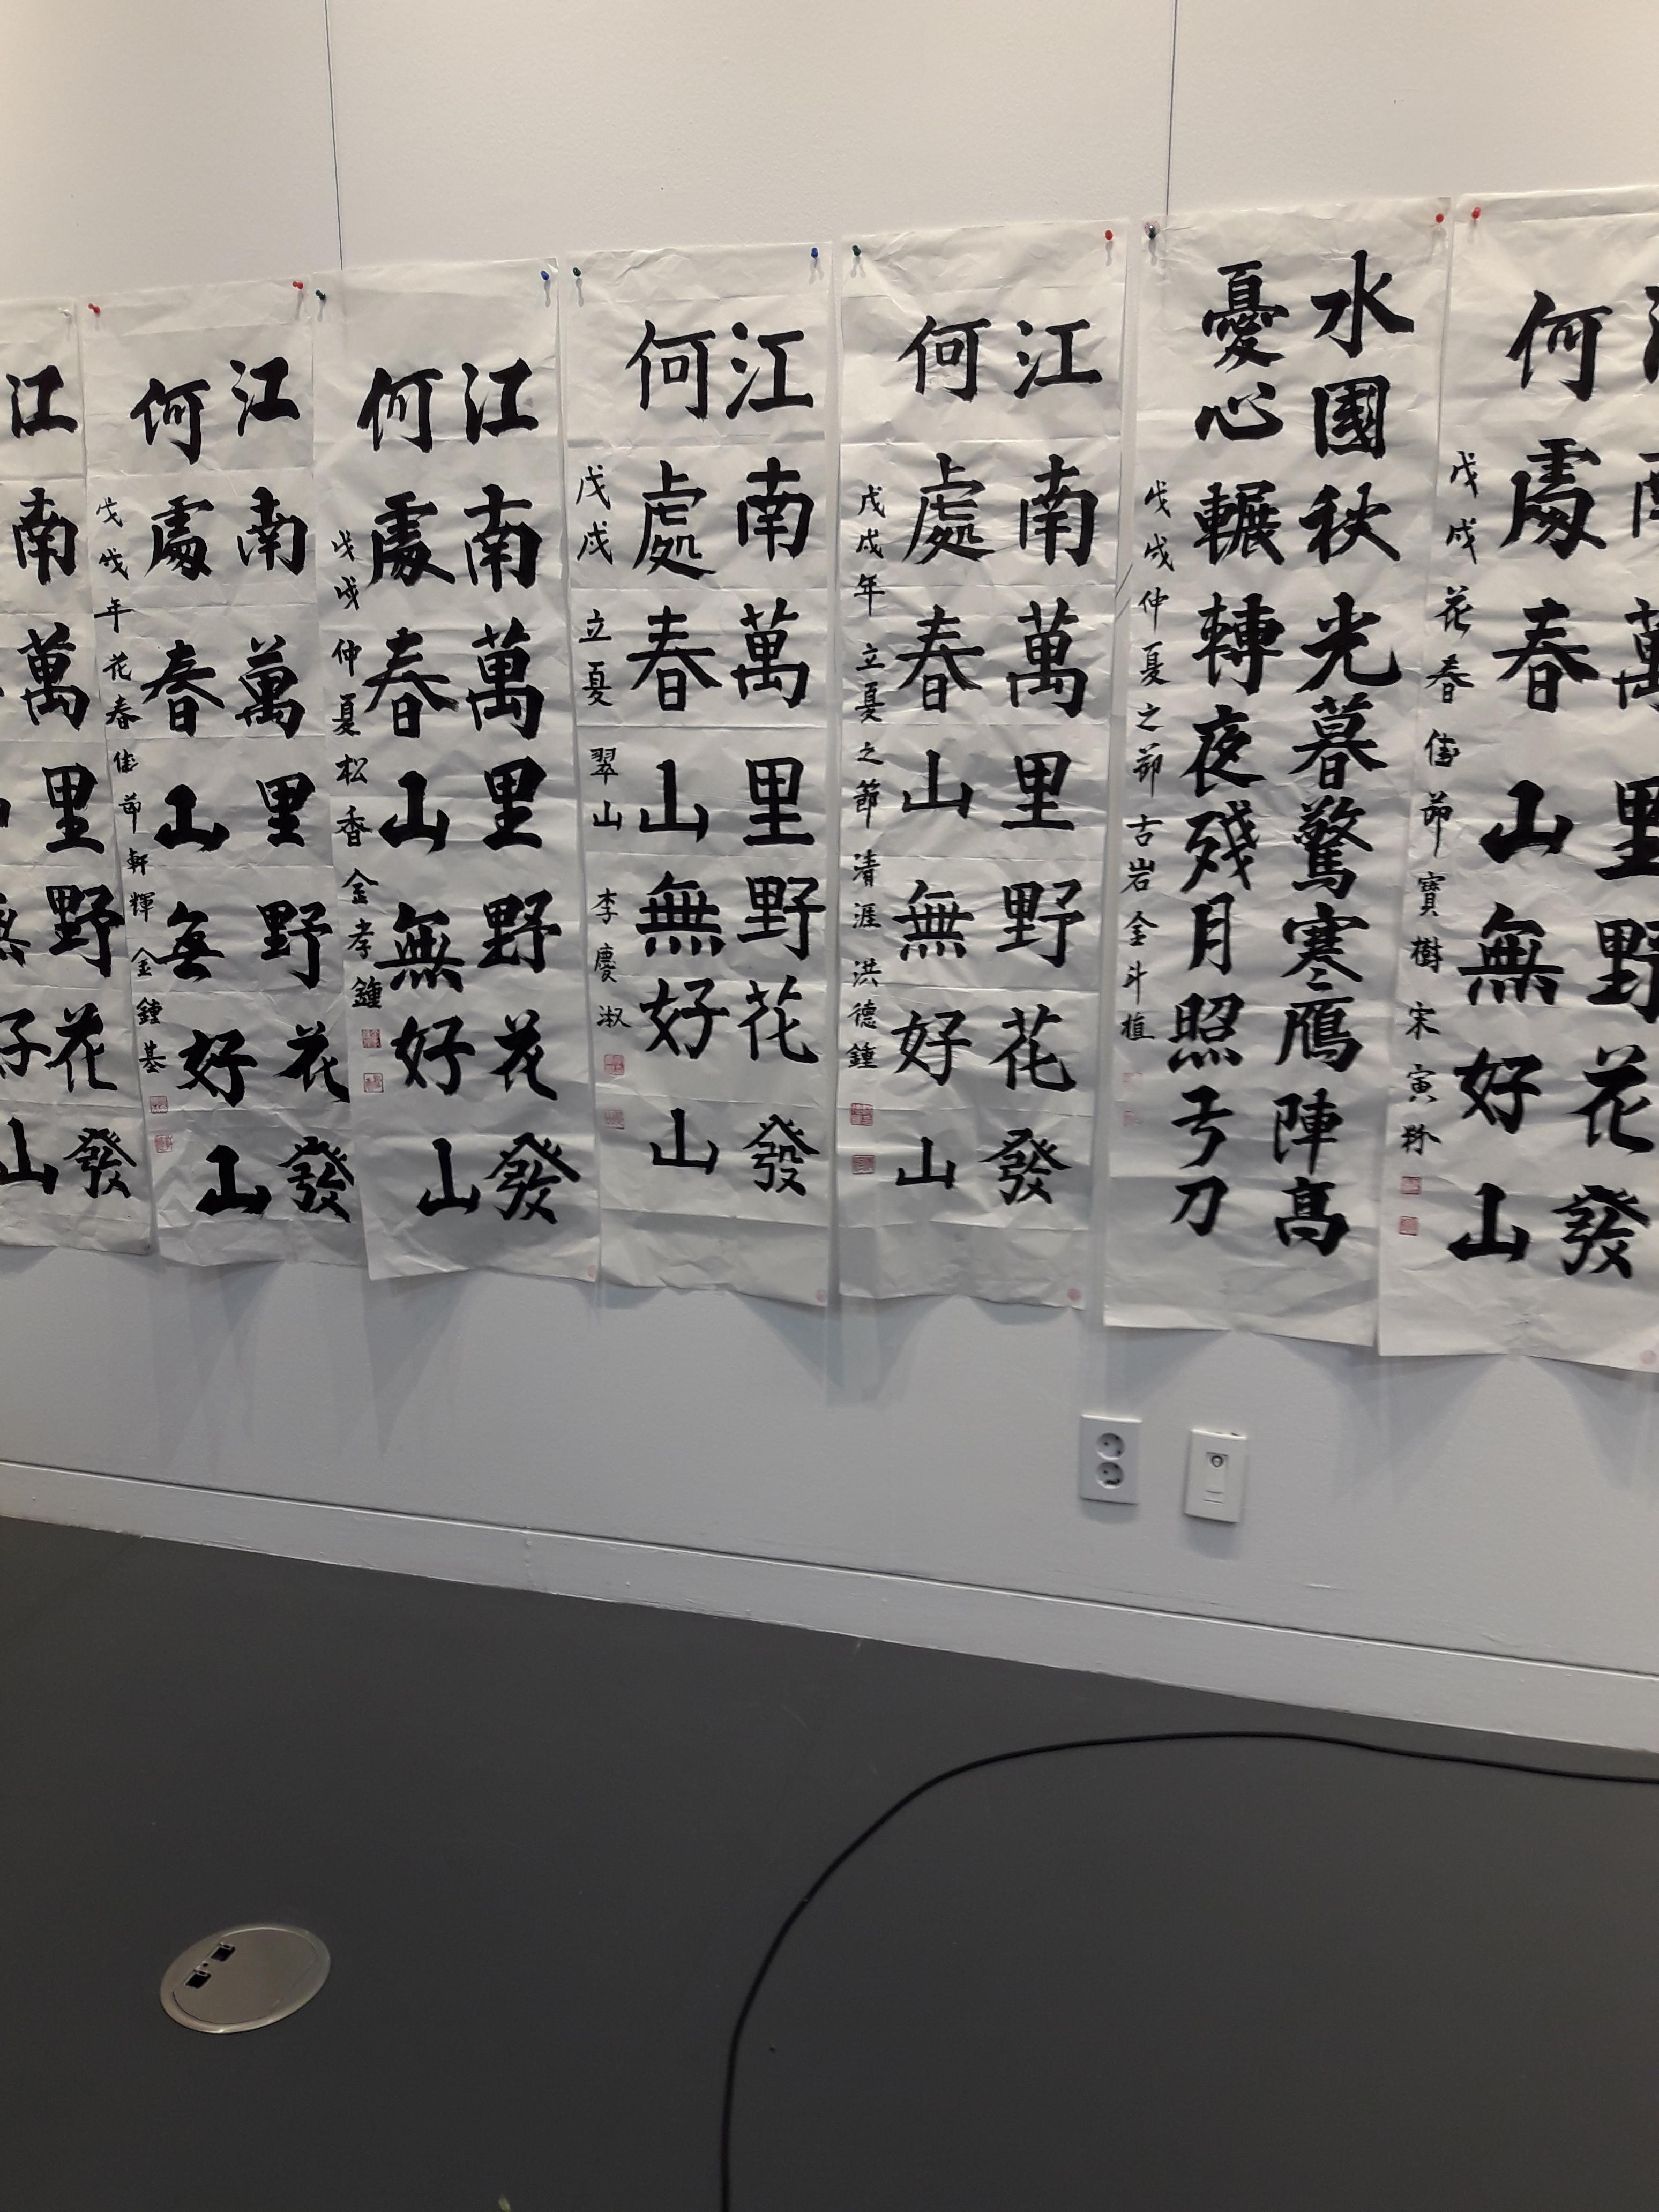 江南萬里野花發
何處春山無好山
戊戌花春佳節寶樹宋寅
水國秋光暮驚寒鴈陣高
憂心輾轉夜殘月照弓刀
戊戌仲夏之節古岩金斗植
江南萬里野花發
何處春山無好山
戊戌年立夏之節清涯洪德鍾
江南萬里野花發
何處春山無好山
戊戌立夏翠山李慶淑
江南萬里野花發
何處春山無好山
戊戌仲夏松香金孝鍾
江南萬里野花發
何處春山無好山
戊戌年花春佳節軒輝金鍾基
江南萬里野花發
山無好山